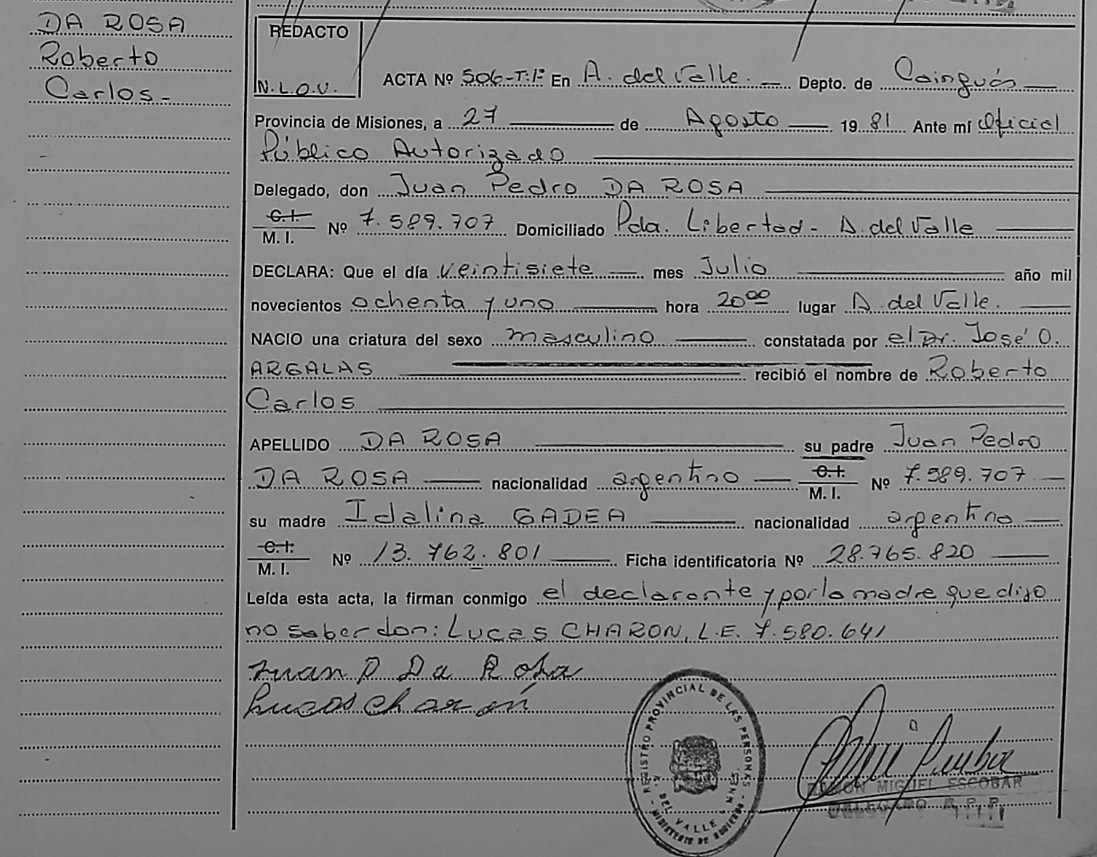 DA ROSA
Roberto
Carlos-
REDACTO
N.L.O.V.
ACTA Nº 506-T:1º En A. del Valle. — Depto. de Cainguás
Provincia de Misiones, a 27 de Agosto 1981 Ante mí Oficial
Público Autorizado
Delegado, don Juan Pedro DA ROSA
C.I. M. I. Nº 7.589.707 Domiciliado Pda. Libertad- A. del Valle
DECLARA: Que el día veintisiete mes Julio año mil
novecientos ochenta y uno hora 20⁰⁰ lugar A. del Valle.
NACIO una criatura del sexo masculino constatada por el Dr. José O.
ARGALAS recibió el nombre de Roberto
Carlos
APELLIDO DA ROSA su padre Juan Pedro
DA ROSA nacionalidad argentino C.I. M. I. Nº 7.589.707
su madre Idalina GADEA nacionalidad argentina
C.I. M. I. Nº 13.762.801 Ficha identificatoria Nº 28.765.820
Leída esta acta, la firman conmigo el declarante y por la madre que dijo
no saber don: Lucas CHARON, L.E. 7.580.641
Juan P Da Rosa
Lucas Charón
REGISTRO PROVINCIAL DE LAS PERSONAS
A. DEL VALLE - MNES.
MINISTERIO DE GOBIERNO
RAMON MIGUEL ESCOBAR
DELEGADO R.P.P.